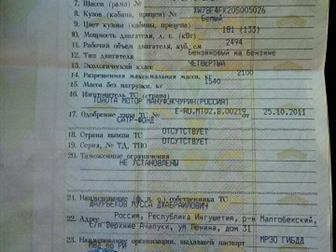 7. Шасси (рама) №
8. Кузов (кабина, прицеп) № XW7BF4FK20S005026
9. Цвет кузова (кабины, прицепа) БЕЛЫЙ
10. Мощность двигателя, л. с. (кВт) 181 (133)
11. Рабочий объем двигателя, куб. см 2494
12. Тип двигателя Бензиновый на бензине
13. Экологический класс ЧЕТВЕРТЫЙ
14. Разрешенная максимальная масса, кг 2100
15. Масса без нагрузки, кг 1540
16. Изготовитель ТС (страна)
ТОЙОТА МОТОР МАНУФЭКЧУРИНГ(РОССИЯ)
17. Одобрение типа ТС № E-RU.MT02.B.00219 от 25.10.2011
САТР-ФОНД
18. Страна вывоза ТС ОТСУТСТВУЕТ
19. Серия, № ТД, ТПО ОТСУТСТВУЕТ
20. Таможенные ограничения
НЕ УСТАНОВЛЕНЫ
21. Наименование (ф. и. о.) собственника ТС
МУССА ДЖАБРАИЛОВИЧ
22. Адрес Россия, Республика Ингушетия, р-н Малгобекский,
с/п Верхние Ачалуки, ул Ленина, дом 31
23. Наименование организации, выдавшей паспорт МРЭО ГИБДД
МВД по РИ